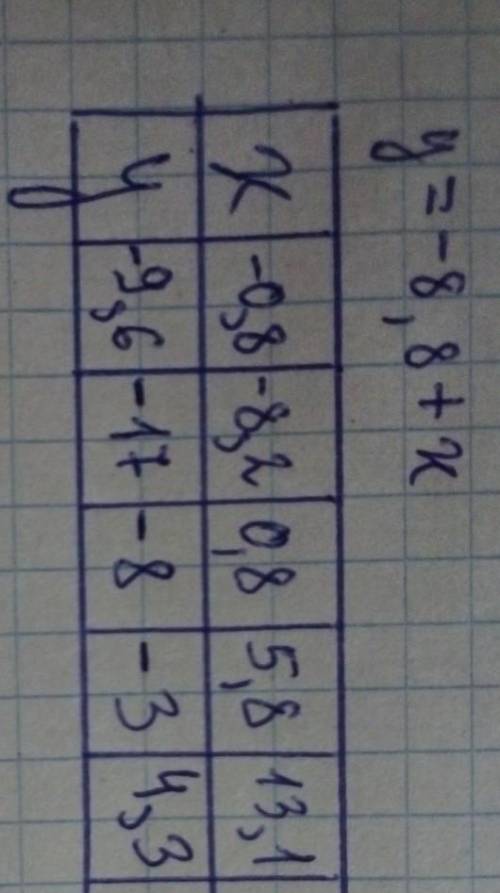 y = -8,8 + x
x -0,8 -8,2 0,8 5,8 13,1
y -9,6 -17 -8 -3 4,3